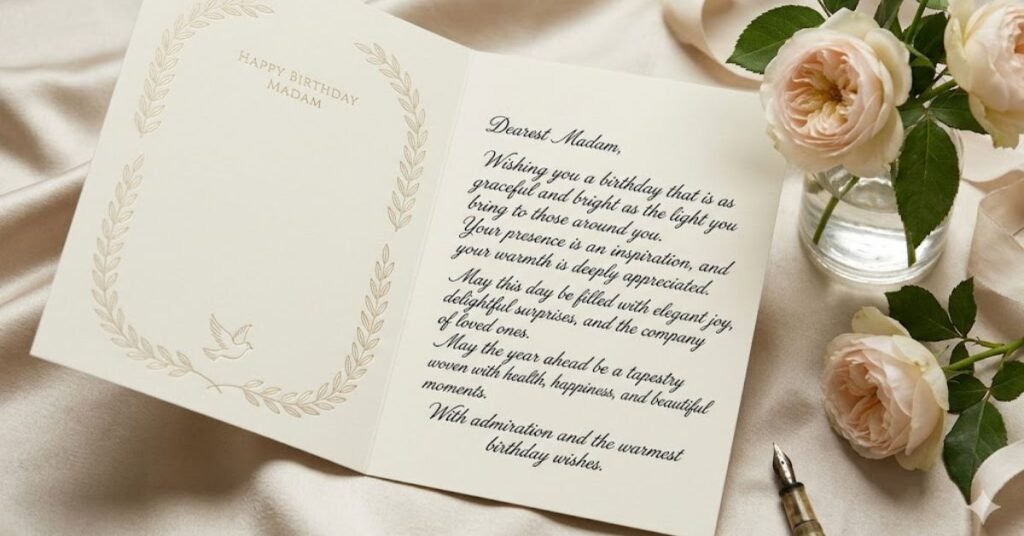 HAPPY BIRTHDAY
MADAM
Dearest Madam,
Wishing you a birthday that is as
graceful and bright as the light you
bring to those around you.
Your presence is an inspiration, and
your warmth is deeply appreciated.
May this day be filled with elegant joy,
delightful surprises, and the company
of loved ones.
May the year ahead be a tapestry
woven with health, happiness, and beautiful
moments.
With admiration and the warmest
birthday wishes.